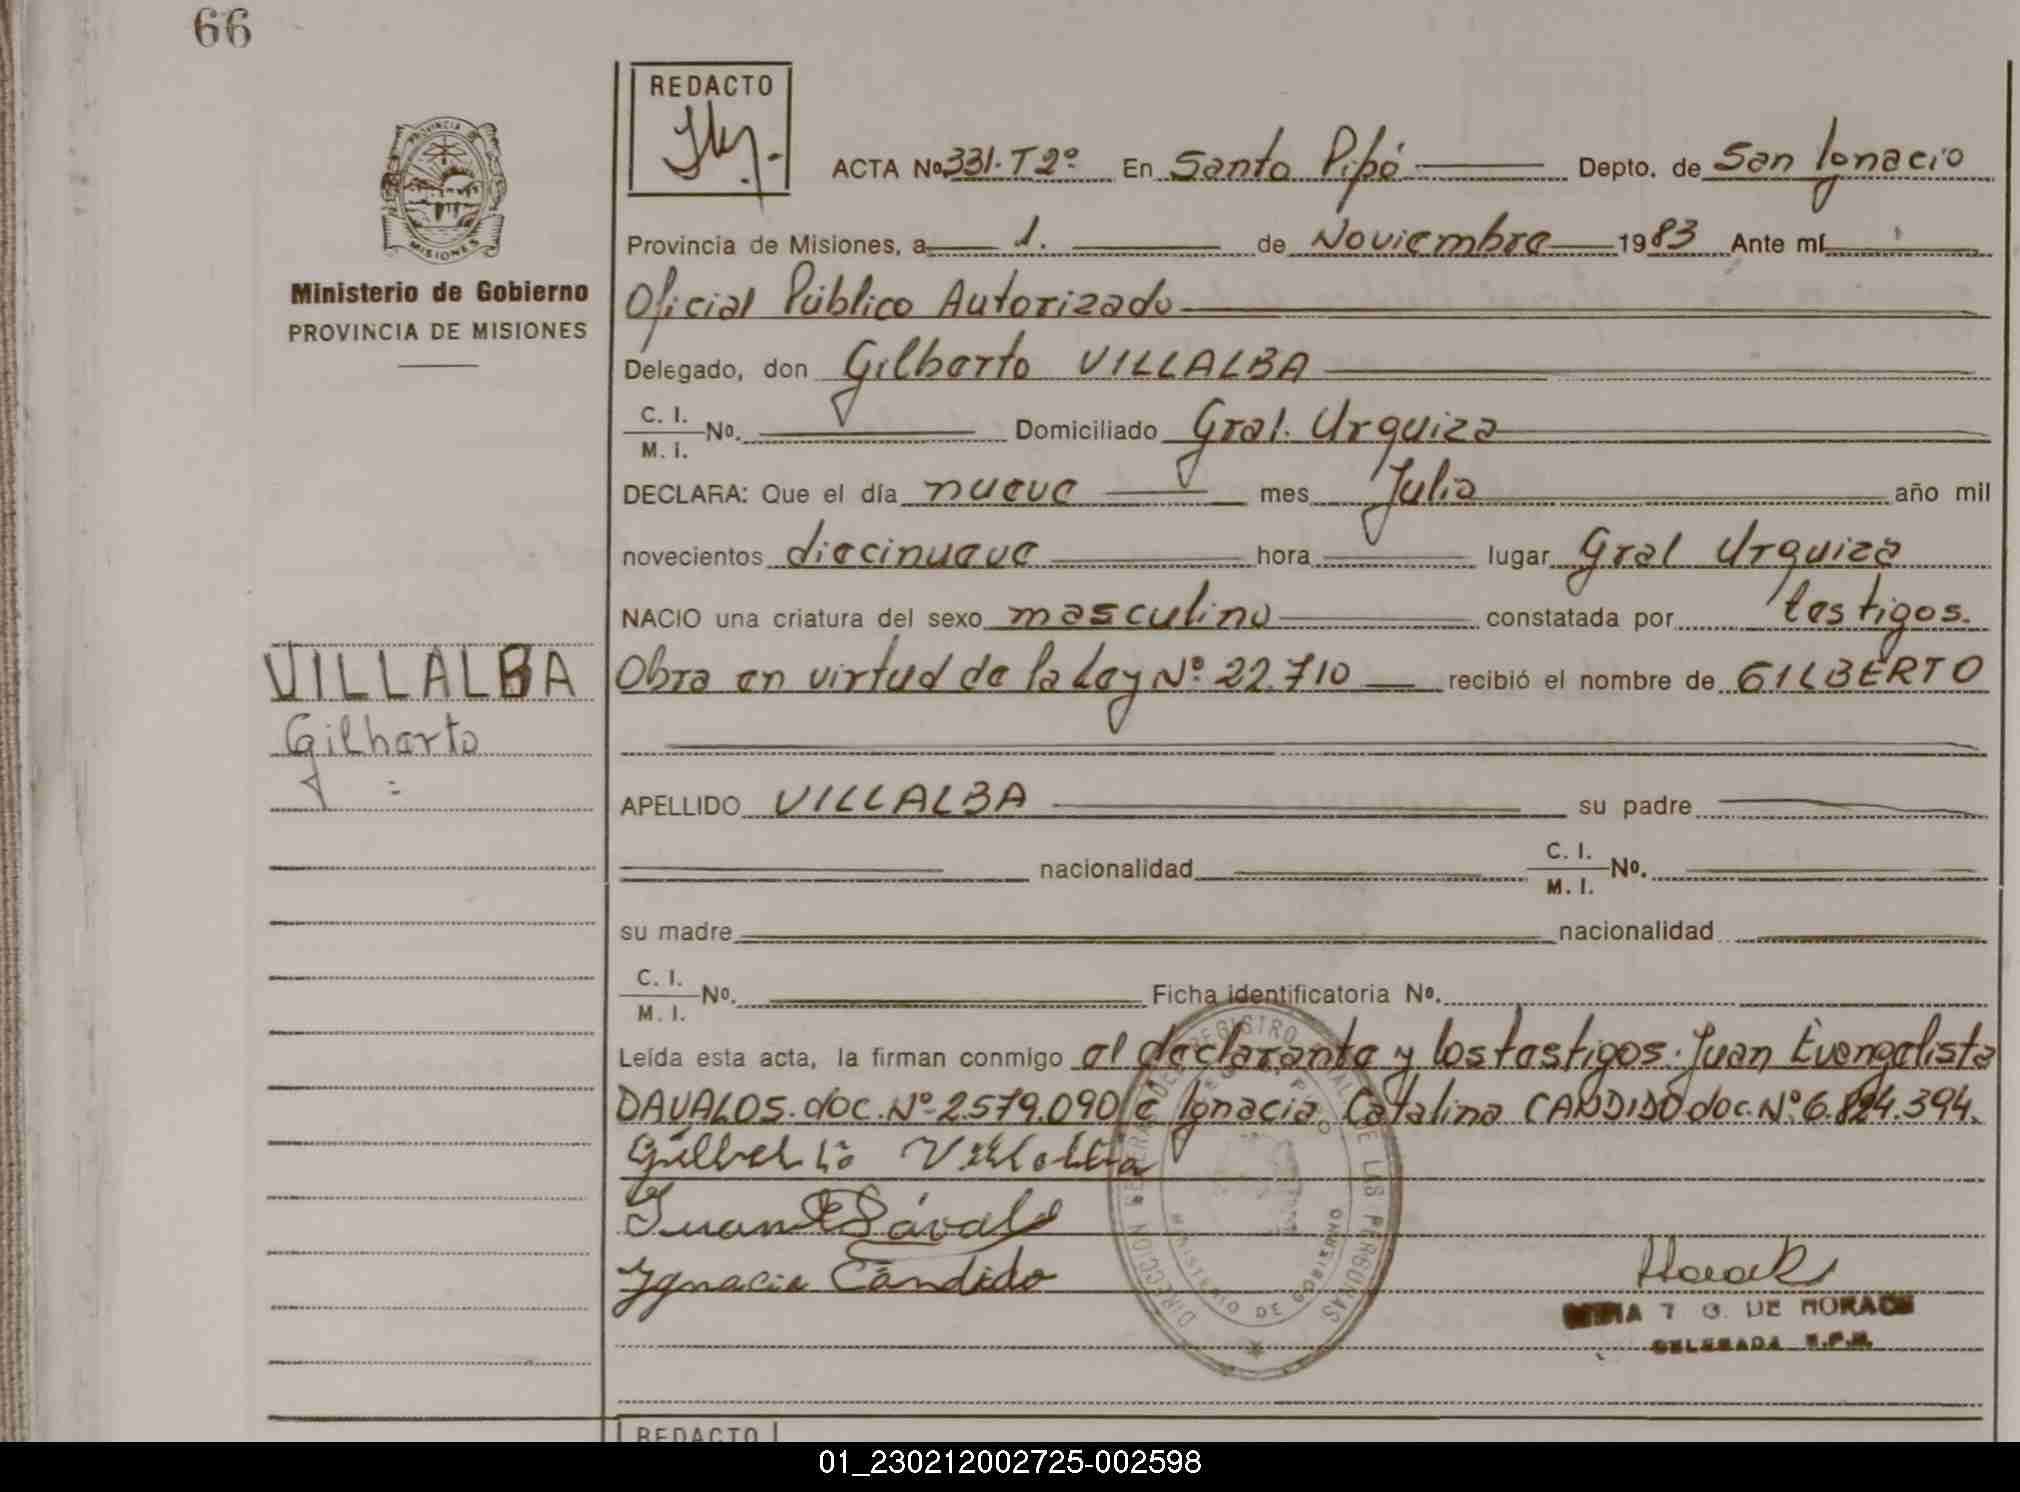 66
REDACTO
PROVINCIA DE
MISIONES
ACTA Nº 331-T2º En Santo Pipó Depto. de San Ignacio
Provincia de Misiones, a 1. de Noviembre 1983 Ante mí
Ministerio de Gobierno
PROVINCIA DE MISIONES
Oficial Público Autorizado
Delegado, don Gilberto VILLALBA
C. I.
M. I. Nº. Domiciliado Gral. Urquiza
DECLARA: Que el día nueve mes Julio año mil
novecientos diecinueve hora lugar Gral Urquiza
NACIO una criatura del sexo masculino constatada por testigos.
VILLALBA
Gilberto
Obra en virtud de la Ley Nº. 22.710 recibió el nombre de GILBERTO
APELLIDO VILLALBA su padre
nacionalidad C. I.
M. I. Nº.
su madre nacionalidad
C. I.
M. I. Nº. Ficha identificatoria Nº.
Leída esta acta, la firman conmigo el declarante y los testigos: Juan Evangelista
DAVALOS. doc. Nº 2.579.090 e Ignacia Catalina CANDIDO doc. Nº 6.824.394.
Gilberto Villalba
Juan E Dávalo
Ignacia Candido
DE HORACK
DELEGADA R.P.P.
MINISTERIO DE GOBIERNO
REDACTO
01_230212002725-002598